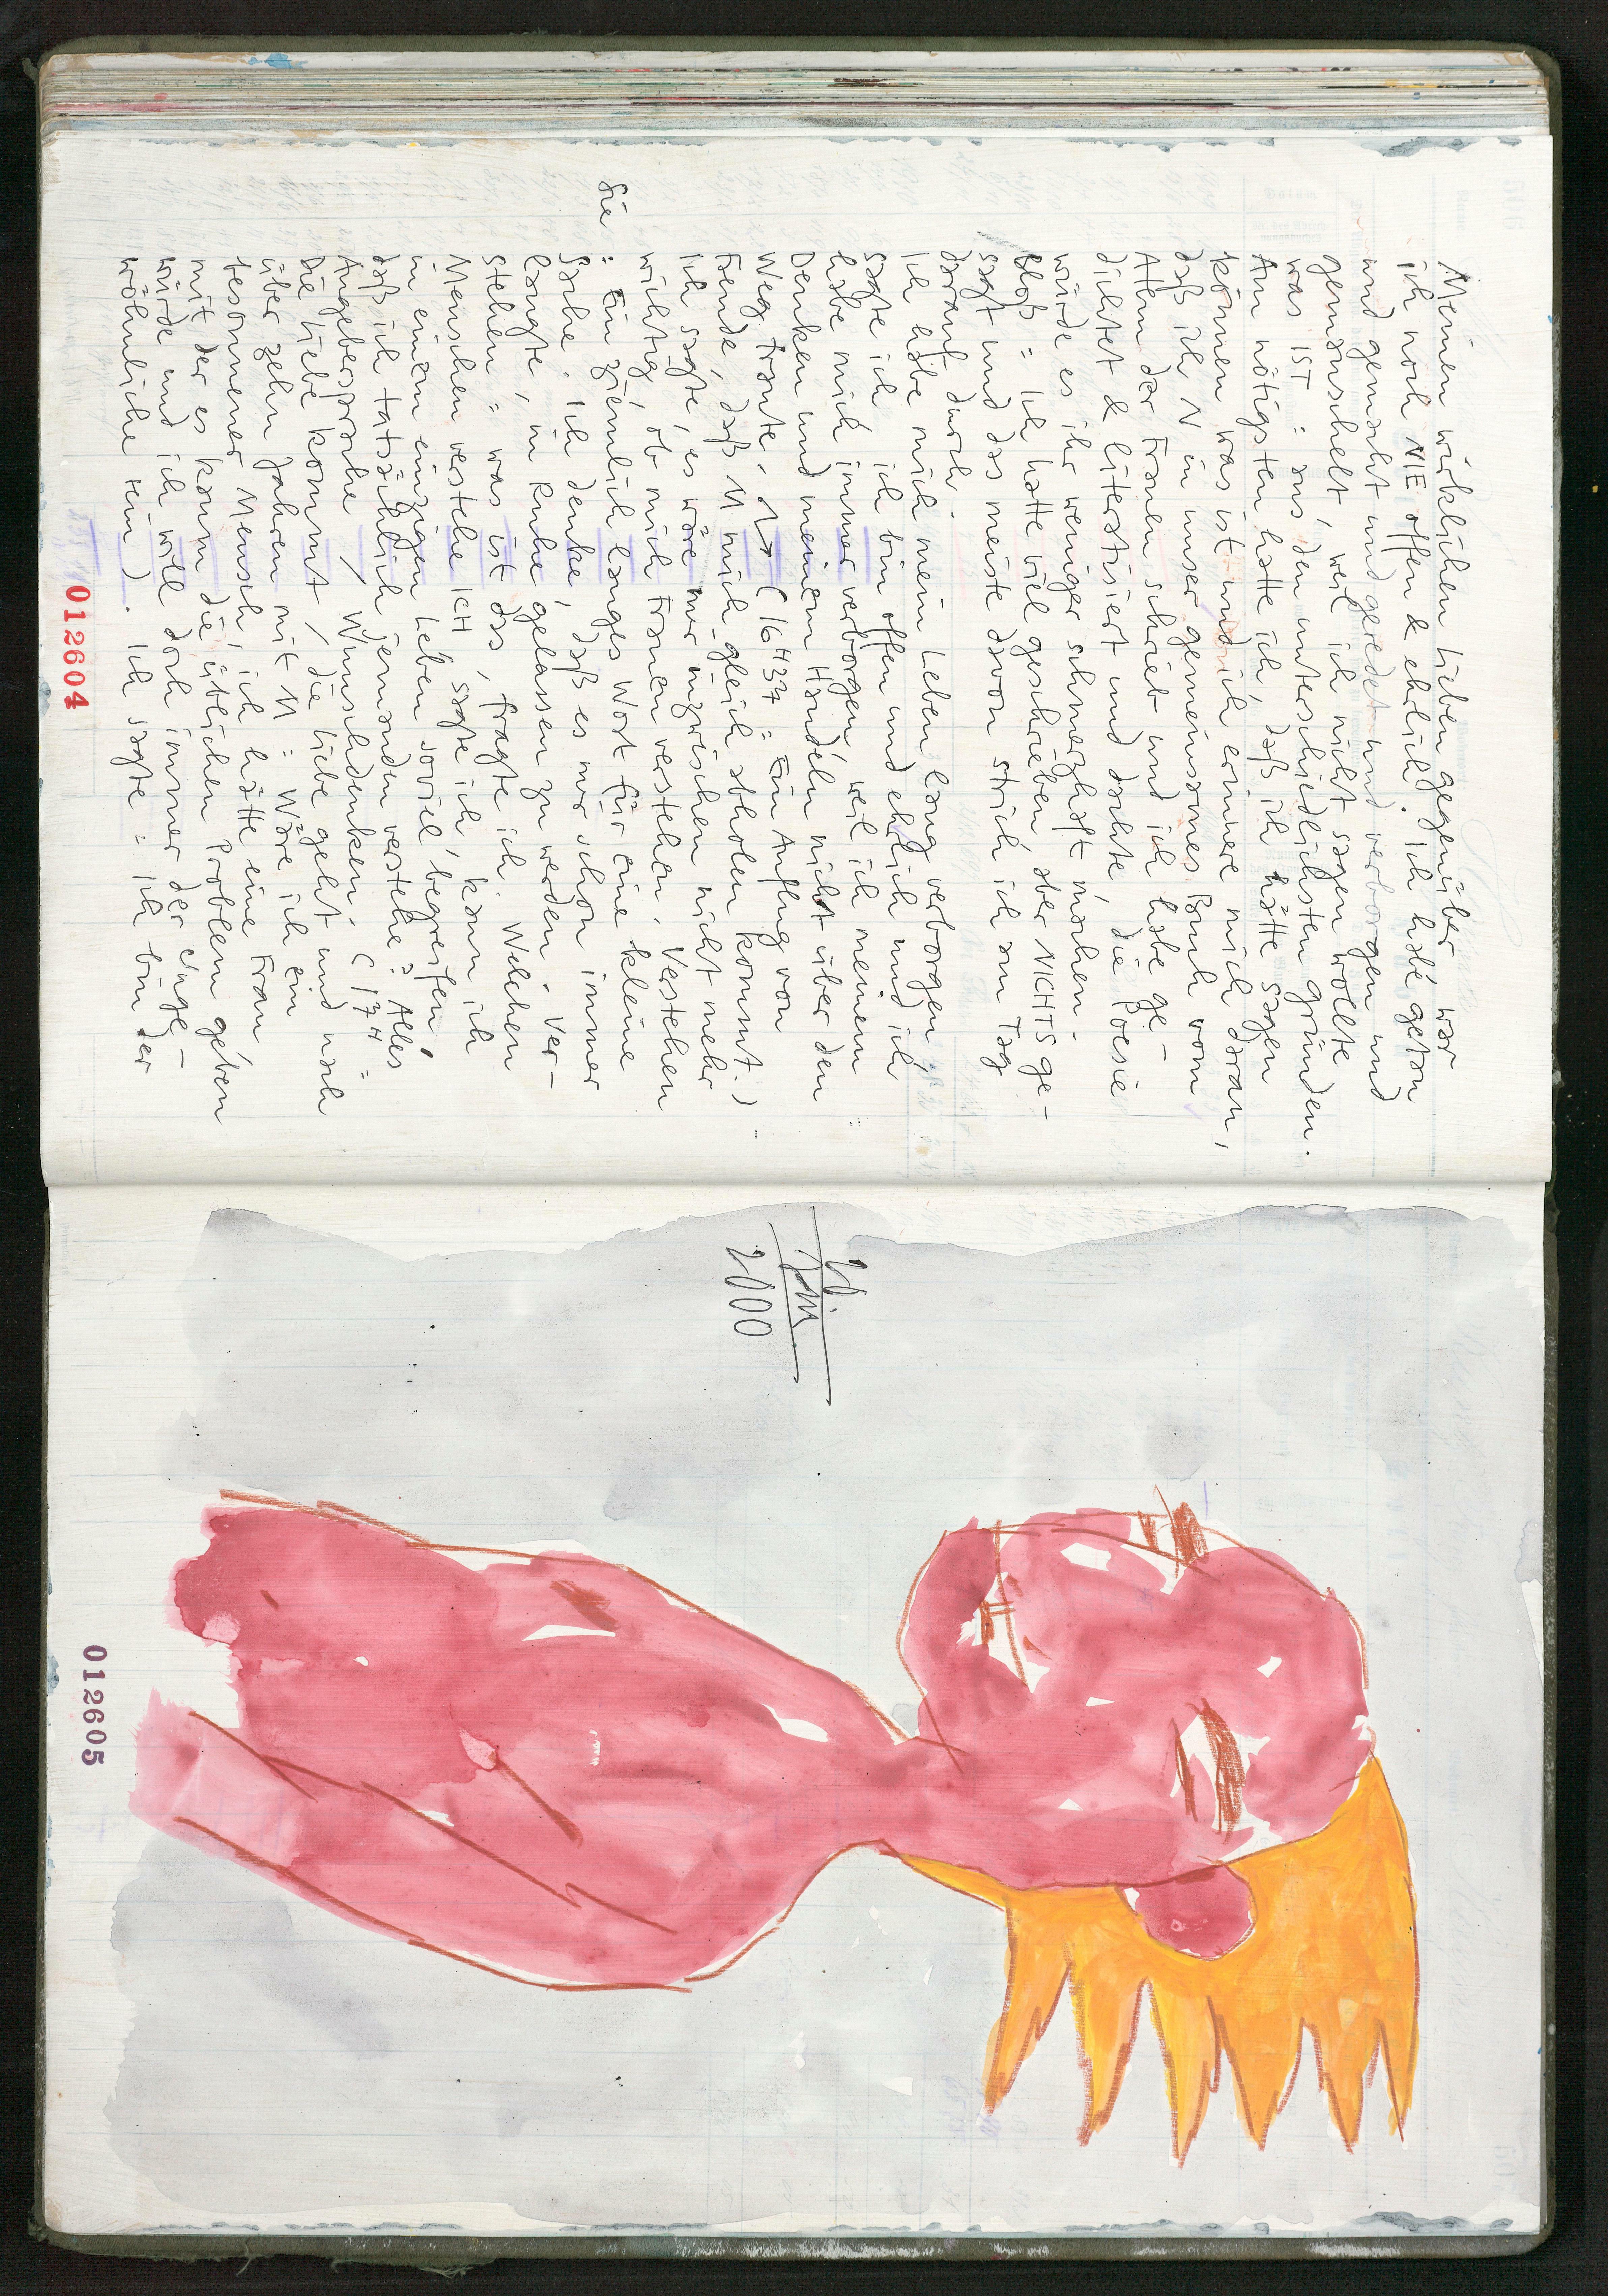 Meinen wirklichen Lieben gegenüber war
ich noch NIE offen & ehrlich. Ich habe getan
und gemacht und geredet und verborgen und
gemauschelt, weil ich nicht sagen wollte
was IST = aus den unterschiedlichsten Gründen.
Am nötigsten hatte ich, daß ich hätte sagen
können was ist und ich erinnere mich daran,
daß ich N in unser gemeinsames Buch vom
Atem der Frauen schrieb und ich habe ge-
dichtet & literarisiert und dachte, die Poesie
würde es ihr weniger schmerzhaft machen.
Bloß = Ich hatte viel geschrieben aber NICHTS ge-
sagt und das meiste davon strich ich am Tag
darauf durch.
Ich habe mich mein Leben lang verborgen
sagte ich, ich bin offen und ehrlich und ich
habe mich immer verborgen, weil ich meinem
Denken und meinem Handeln nicht über den
Weg traute. (16H37 = Ein Anflug von
Freude, daß M mich gleich abholen kommt.)
Ich sagte, es wäre mir inzwischen nicht mehr
wichtig, ob mich Frauen verstehen. Verstehen
Sie = Ein ziemlich langes Wort für eine kleine
Sache. Ich denke, daß es mir schon immer
langte, in Ruhe gelassen zu werden. Ver-
stehen = was ist das, fragte ich. Welchen
Menschen verstehe ICH sagte ich, kann ich
in einem einzigen Leben soviel begreifen,
daß ich tatsächlich jemanden verstehe? Alles
Angebersprache / Wunschdenken. (17H =
Die Liebe kommt / die Liebe geht und nach
über zehn Jahren mit M = Wäre ich ein
besonnener Mensch, ich hätte eine Frau,
mit der es kaum die üblichen Probleme geben
würde und ich will doch immer der Unge-
wöhnliche sein). Ich sagte = ich bin der
012604
20
Juni
2000
012605